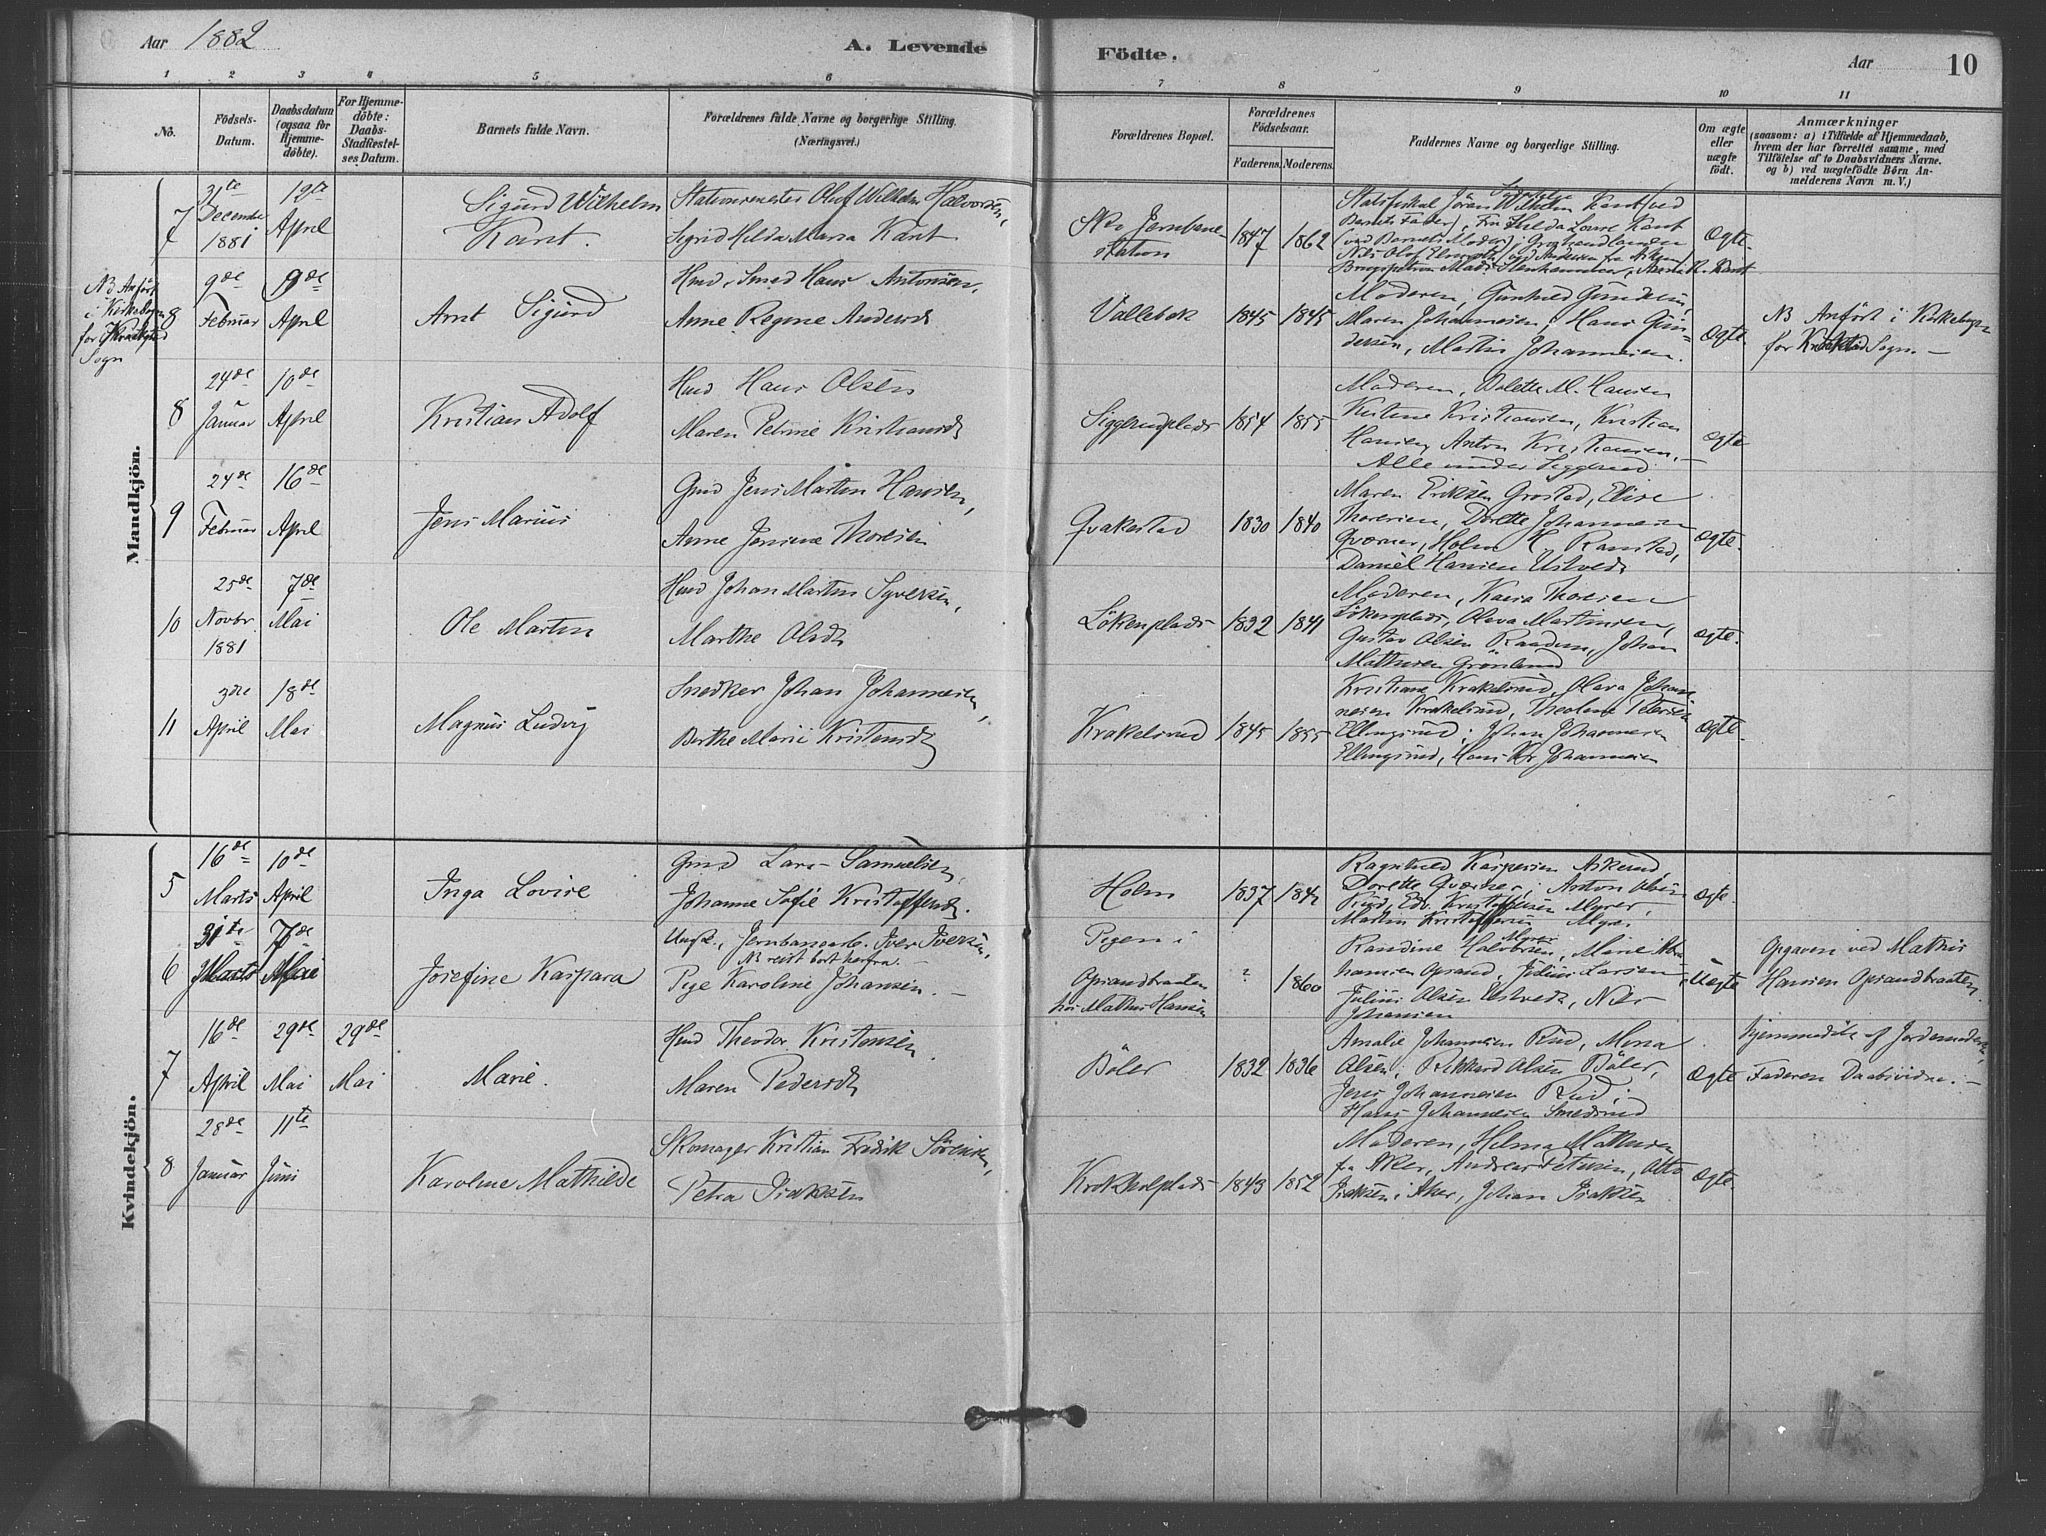 Aar 1882
A. Levende
Födte.
Aar
10
1 2 3 4 5 6 7 8 9 10 11
No.
Födsels-Datum.
Daabsdatum (ogsaa for Hjemmedöbte).
For Hjemmedöbte: Daabs-Stadfæstelses Datum.
Barnets fulde Navn.
Forældrenes fulde Navne og borgerlige Stilling.
(Næringsvei.)
Forældrenes Bopæl.
Forældrenes Födselsaar.
Faderens. Moderens.
Faddernes Navne og borgerlige Stilling.
Om ægte eller uægte födt.
Anmærkninger
(saasom: a) i Tilfælde af Hjemmedaab, hvem der har forrettet samme, med Tilföielse af to Daabsvidners Navne. og b) ved uægtefödte Börn Anmelderens Navn m. V.)
Mandkjön.
7
31te December 1881
12te April
Sigurd Wilhelm Kant.
Stationsmester Oluf Wilhelm Halvorsen,
Sigrid Hilda Maria Kant
Ski Jernbane-station
1847 1862
Ægte.
NB Anfört i Kirkebogen for Kraakstad Sogn
8
9de Februar
9de April
Arnt Sigurd
Hmd, Smed Hans Antonsen,
Anne Regine Andersd
Vallebek
1845 1845
Moderen, Gunhild Gundersen,
Maren Johannesen, Hans Gundersen, Martin Johannesen.
Ægte.
NB Anfört i Kirkebogen
for Kraakstad Sogn. —
8
24de Januar
10de April
Kristian Adolf
Hmd Hans Olsen
Maren Petrine Kristiansd
Siggerudplads
1854 1855
Moderen, Bolette M. Hansen
Kristian
Hansen, Anton Kristiansen. —
Alle under Siggerud
Ægte
9
24de Februar
16de April
Jens Marius
Gmd Jens Martin Hansen,
Anne Jensine Thoresen
Qvakestad
1830 1840
Maren Eriksen Grøstad, Elise
Thoresen, Dorette Johannesen
Qværner, Holm K. Ramstad,
Daniel Hansen Ustvedt
Ægte.
10
25de Novbr. 1881
7de Mai
Ole Martin
Hmd Johan Martin Syversen,
Marthe Olsd
Lökenplads
1832 1841
Moderen, Kaisa Thoresen
Lökenplads, Olava Martinsen,
Gustav Olsen Raadum, Johan
Mathisen Grönlund
Ægte.
11
3die April
18de Mai
Magnus Ludvig
Snedker Johan Johannesen,
Berthe Marie Kristensd
Krakelsrud
1845 1855
Kristiane Krakelsrud, Olava Johannesen Krakelsrud, Theoline Petersen
Ellingsrud, Johan Johannesen
Ellingsrud, Hans Kr. Johannesen
Ægte.
Kvindekjön.
5
16de Marts
10de April
Inga Lovise
Gmd Lars Samuelsen,
Johanne Sofie Kristoffersd.
Holm
1837 1842
Ragnhild Kaspersen Askerud,
Dorette Qværner, Anton Olsen
Rud, Edv. Kristoffersen Myrer,
Martin Kristoffersen Myrer
Ægte.
6
31te Marts
7de Mai
Josefine Kaspara
Ungk., Jernbanearb. Iver Iversen,
NB reist bort herfra. —
Pige Karoline Johansen. —
Pigen i
Opsandbraaten
hos Mathis Hansen
? 1860
Randine Halvorsen, Marie
Opsand, Julius Larsen
Julius Olsen Ustvedt, Nils
Johansen
Uægte
Opgaven ved Mathis
Hansen Opsandbraaten
7
16de April
29de Mai
29de Mai
Marie.
Hmd Theodor Kristensen.
Maren Pedersd
Böler
1832 1836
Amalie Johannesen Rud, Mona
Olsen, Rikkard Olsen Böler,
Jens Johannesen Rud,
Hans Johannesen Smedsrud
Ægte
Hjemmedöbt af Jordemoderen,
Faderen Daabsvidne. —
8
28de Januar
11te Juni
Karoline Mathilde
Skomager Kristian Fredrik Sörensen,
Petra Isaksen
Krokholplads
1843 1852
Moderen, Helma Mathisen
fra Aker, Andreas Petersen, Otto
Isaksen i Aker, Johan Isaksen
Ægte.